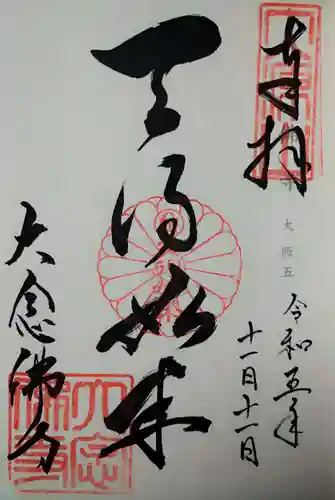 奉拝
大阪五
令和五年
十一日十一日
天得如来
大念佛寺